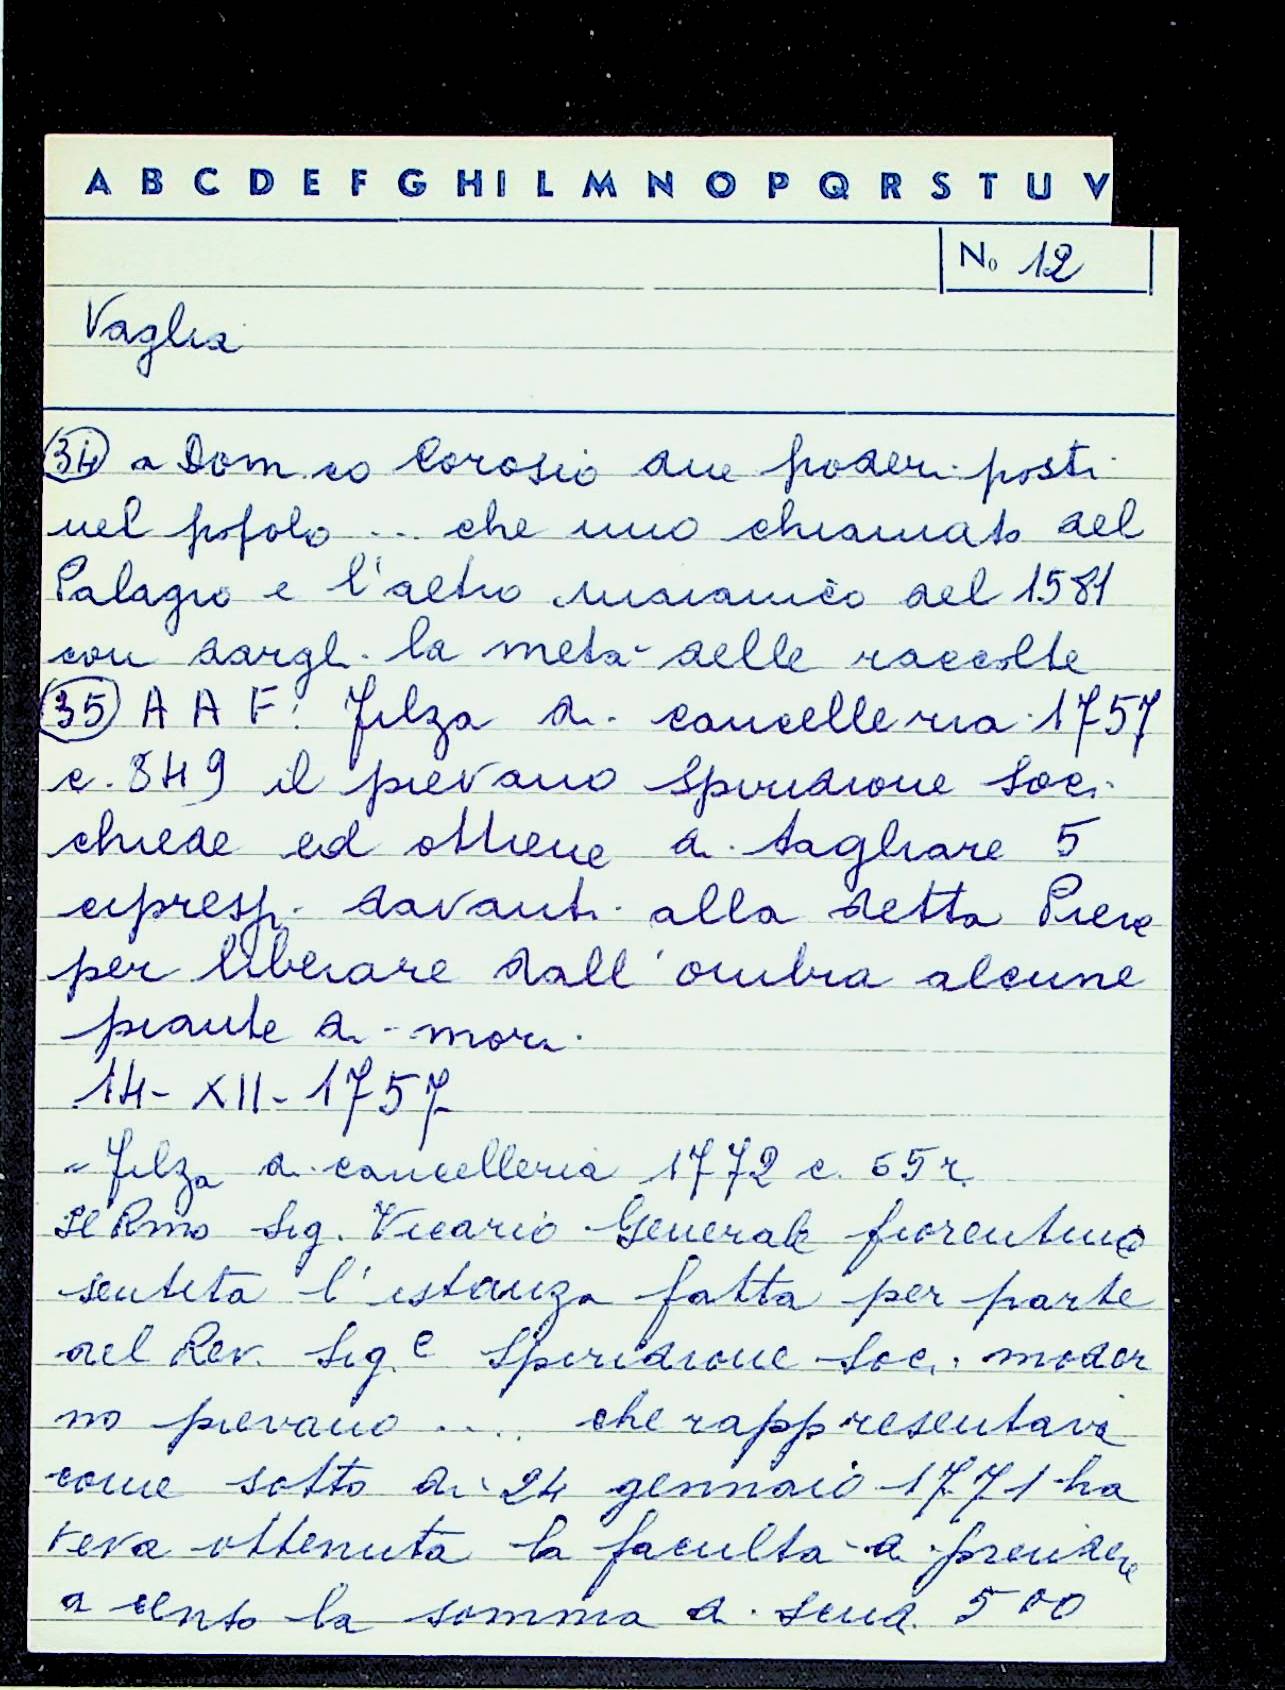 A B C D E F G H I L M N O P Q R S T U V
No 12
Vaglia
34 a Dom.co Corosio due poderi posti
nel popolo ... che uno chiamato del
Palagio e l'altro del 1581
con dargli la metà delle raccolte
35 A A F. Filza di cancelleria 1757
c. 849 il pievano Spiridione Soci
chiede ed ottiene di tagliare 5
cipressi davanti alla detta Pieve
per liberare dall'ombra alcune
piante di mori.
14-XII-1757
" Filza di cancelleria 1772 c. 65r.
Il Rmo Sig. Vicario Generale fiorentino
sentita l'istanza fatta per parte
del Rev. Sig.e Spiridione Soci moder
no pievano .... che rappresentava
come sotto di 24 gennaio 1771 ha
veva ottenuta la facultà di prendere
a censo la somma di scudi 500